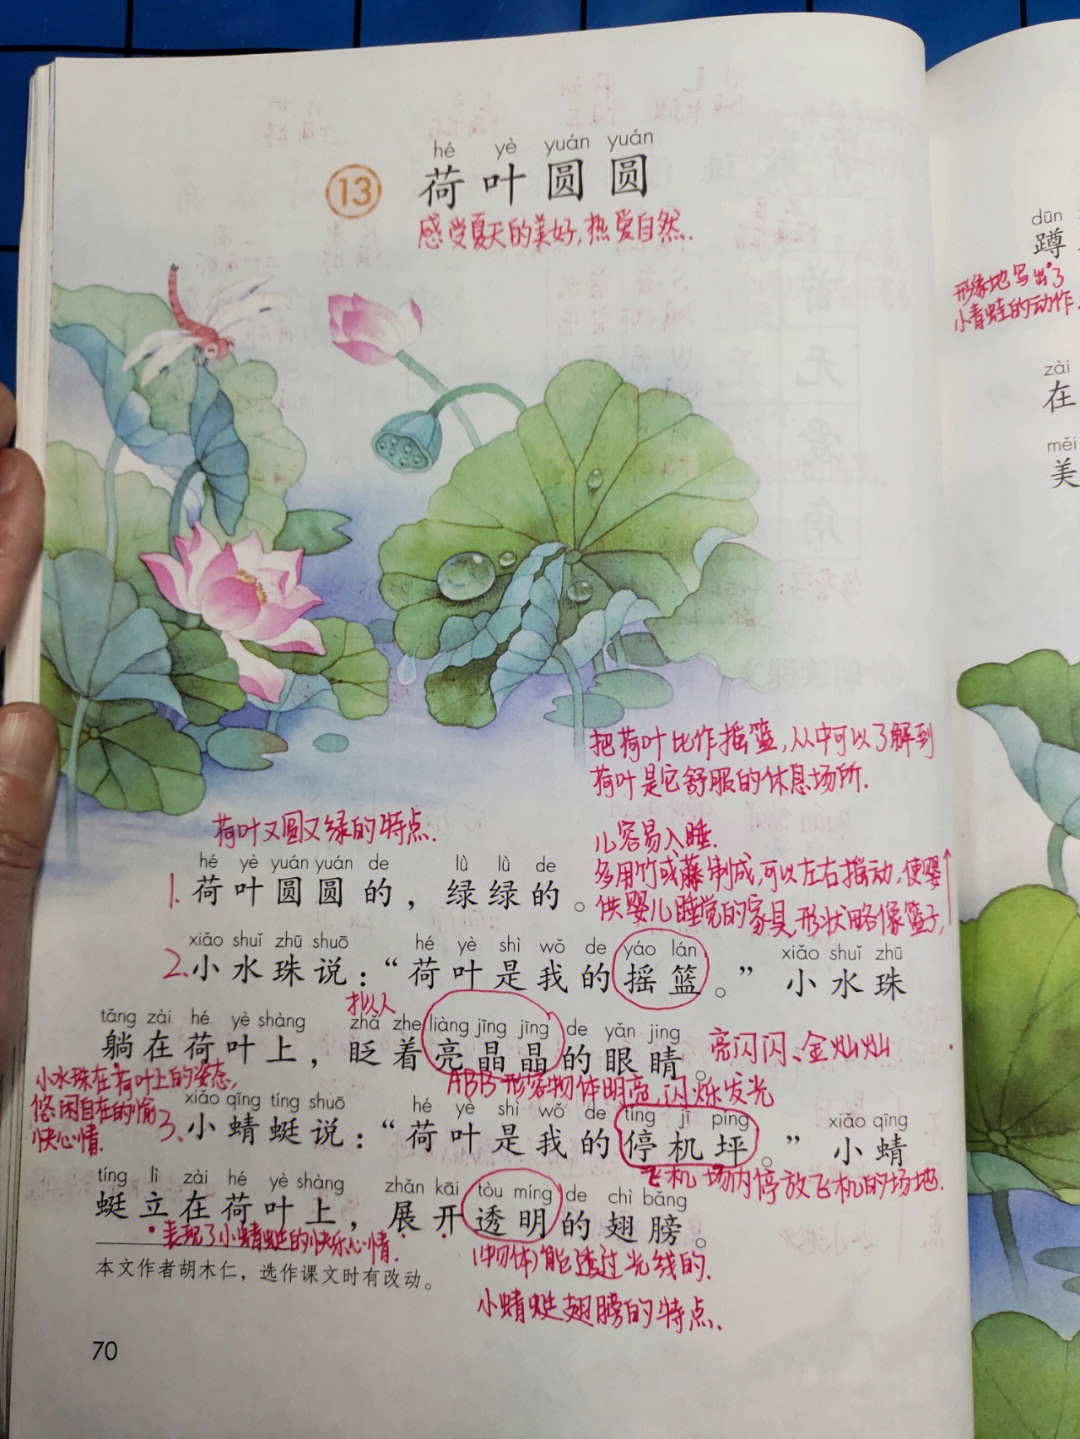 hé yè yuán yuán
13 荷叶圆圆
感受夏天的美好,热爱自然.
dūn
蹲
形象地写出了
小青蛙的动作.
zài
在
měi
美
把荷叶比作摇篮,从中可以了解到
荷叶是它舒服的休息场所.
荷叶又圆又绿的特点.
儿容易入睡.
多用竹或藤制成,可以左右摇动,使婴
供婴儿睡觉的家具,形状略像篮子,
hé yè yuán yuán de lǜ lǜ de
1.荷叶圆圆的,绿绿的。
xiǎo shuǐ zhū shuō hé yè shì wǒ de yáo lán xiǎo shuǐ zhū
2.小水珠说:“荷叶是我的摇篮。”小水珠
拟人
tǎng zài hé yè shàng zhǎ zhe liàng jīng jīng de yǎn jing
躺在荷叶上,眨着亮晶晶的眼睛。
亮闪闪、金灿灿
ABB形容物体明亮,闪烁发光
小水珠在荷叶上的姿态,
悠闲自在的愉
快心情.
xiǎo qīng tíng shuō hé yè shì wǒ de tíng jī píng xiǎo qīng
3、小蜻蜓说:“荷叶是我的停机坪。”小蜻
飞机场内停放飞机的场地.
tíng lì zài hé yè shàng zhǎn kāi tòu míng de chì bǎng
蜓立在荷叶上,展开透明的翅膀。
表现了小蜻蜓的快乐心情.
(物体)能透过光线的.
本文作者胡木仁,选作课文时有改动。
小蜻蜓翅膀的特点.
70